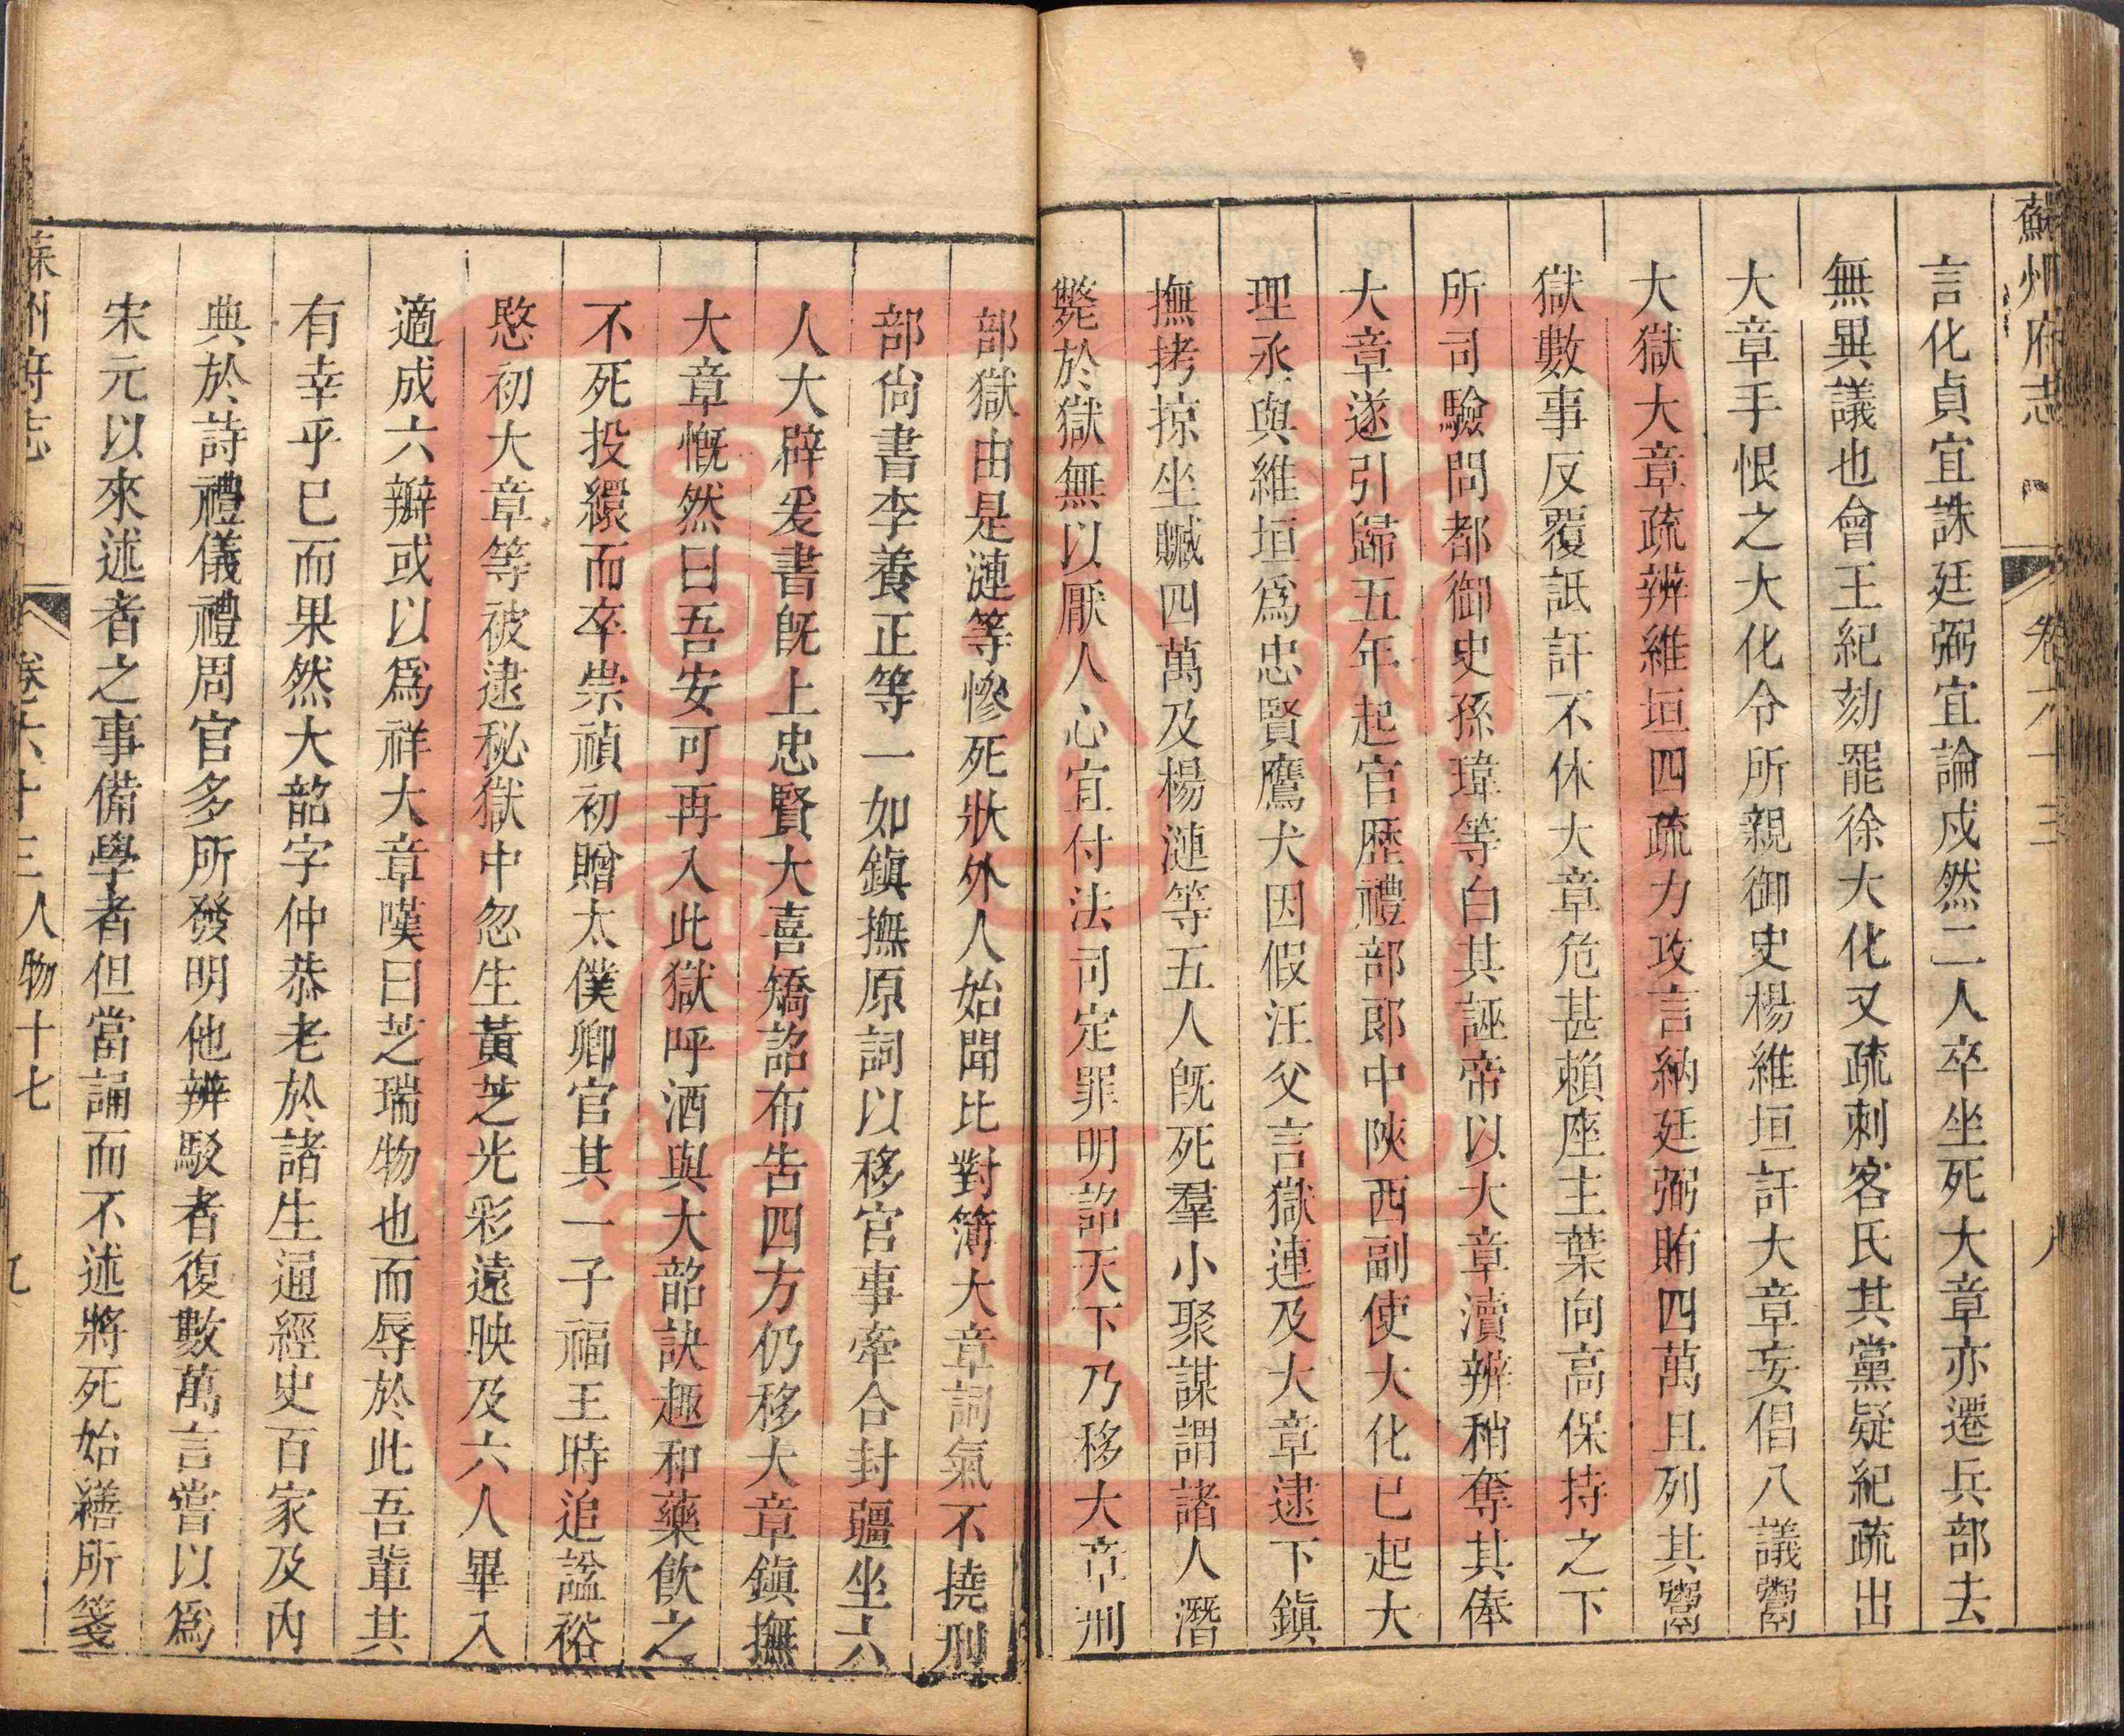 蘇州府志 卷六十三 八
言化貞宜誅廷弼宜論戍然二人卒坐死大章亦遷兵部去
無異議也會王紀劾罷徐大化又疏刺客氏其黨疑紀疏出
大章手恨之大化令所親御史楊維垣訐大章妄倡八議鬻
大獄大章疏辨維垣四疏力攻言納廷弼賄四萬且列其鬻
獄數事反覆詆訐不休大章危甚賴座主葉向高保持之下
所司驗問都御史孫瑋等白其誣帝以大章瀆辨稍奪其俸
大章遂引歸五年起官歷禮部郎中陝西副使大化已起大
理丞與維垣爲忠賢鷹犬因假汪父言獄連及大章逮下鎭
撫拷掠坐贓四萬及楊漣等五人旣死羣小聚謀謂諸人潛
斃於獄無以厭人心宜付法司定罪明詔天下乃移大章刑
部獄由是漣等慘死狀外人始聞比對簿大章詞氣不撓刑
部尙書李養正等一如鎭撫原詞以移宮事牽合封疆坐六
人大辟爰書旣上忠賢大喜矯詔布告四方仍移大章鎭撫
大章慨然曰吾安可再入此獄呼酒與大韶訣趣和藥飮之
不死投繯而卒崇禎初贈太僕卿官其一子福王時追諡裕
愍初大章等被逮秘獄中忽生黃芝光彩遠映及六人畢入
適成六瓣或以爲祥大章嘆曰芝瑞物也而辱於此吾輩其
有幸乎已而果然大韶字仲恭老於諸生通經史百家及內
典於詩禮儀禮周官多所發明他辨駁者復數萬言嘗以爲
宋元以來述者之事備學者但當誦而不述將死始繕所箋
蘇州府志 卷六十三人物十七 九